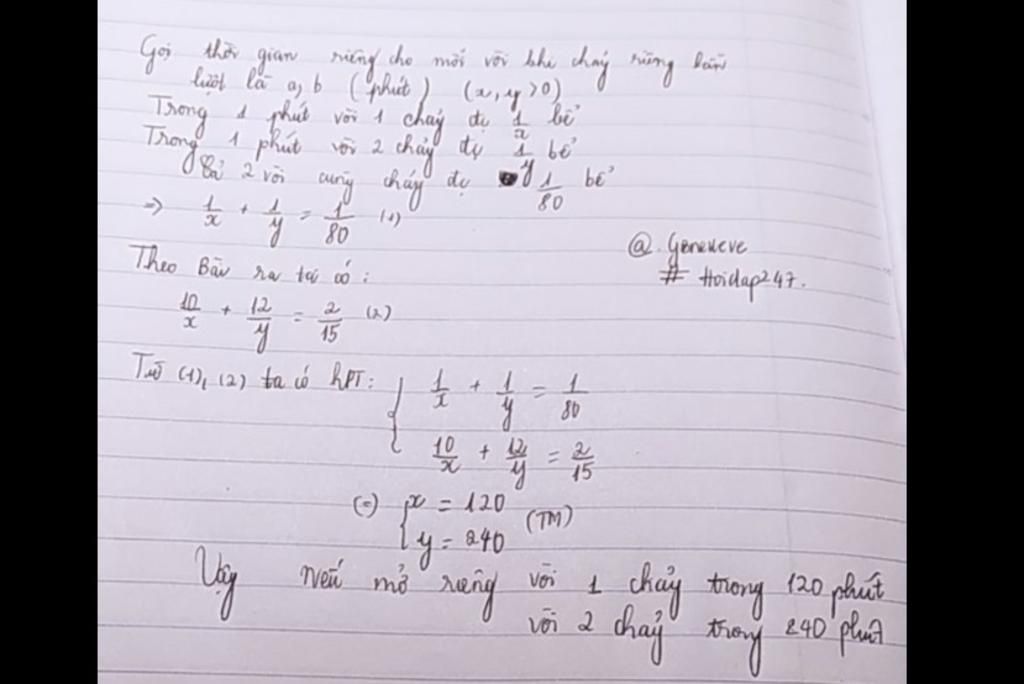 Gọi thời gian riêng cho mỗi vòi khi chảy riêng lần
lượt là a, b (phút) (x, y > 0)
Trong 1 phút vòi 1 chảy đc 1/x bể
Trong 1 phút vòi 2 chảy đc 1/y bể
Cả 2 vòi cùng chảy đc 1/80 bể
=> 1/x + 1/y = 1/80 (1)
@.Genevieve
# Hoidap247.
Theo Bài ra ta có:
10/x + 12/y = 2/15 (2)
Từ (1), (2) ta có hPT: { 1/x + 1/y = 1/80
10/x + 12/y = 2/15
(=) { x = 120
y = 240 (TM)
Vậy nếu mở riêng vòi 1 chảy trong 120 phút
vòi 2 chảy trong 240 phút